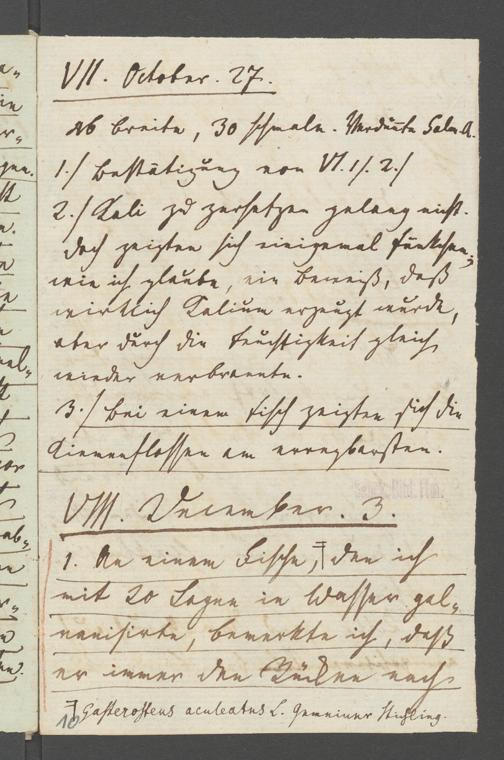 VII. October. 27.
26 breite, 30 schmale. Verdünnte Salm.A.
1./ Bestätigung von VI. 1/. 2./
2./ Kali zu zersetzen gelang nicht.
doch zeigten sich einigemal Fünkchen,
wie ich glaube, ein Beweiß, daß
wirklich Kalium erzeugt wurde,
aber durch die Feuchtigkeit gleich
wieder verbrannte.
3./ Bei einem Fisch zeigten sich die
Kiemenflossen am erregbarsten.
VIII. December. 3.
1. An einem Fische, den ich
mit 20 Lagen in Wasser gal„
vanisirte, bemerkte ich, daß
er immer den Rücken nach
Gasterosteus aculeatus L. Gemeiner Stichling.
10